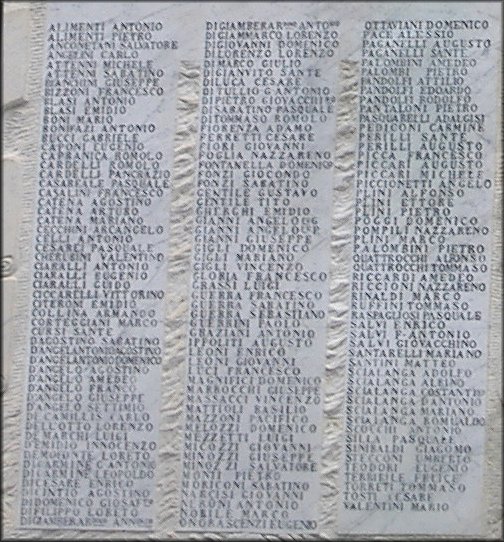 ALIMENTI ANTONIO
ALIMENTI PIETRO
ANCONETANI SALVATORE
ANGELINI CARLO
ATTENNI MICHELE
ATTENNI SABATINO
BALDONI GIUSEPPE
BIZZONI FRANCESCO
BLASI ANTONIO
BLASI EMIDIO
BONI MARIO
BONIFAZI ANTONIO
BUCCI GABRIELE
EUGENIO
CAPRANICA ROMOLO
ROMEO
CARDELLI PANCRAZIO
CASAREALE PASQUALE
CASALINI FRANCESCO
CATENA AGOSTINO
CATENA ARTURO
CATENA MARIANO
CECCHINI ARCANGELO
CELLI ANTONIO
CESAREI PASQUALE
CHERUBINI VALENTINO
CIARALLI ANTONIO
CIARALLI EUGENIO
CIARALLI GUIDO
CICCARELLI VITTORINO
CITERONI EMIDIO
COLLINA ARMANDO
CORTEGGIANI MARCO
CURSI SANTE
DAGOSTINO SABATINO
DANGELANTONIO AGOSTINO
DANGELANTONIO DOMENICO
D'ANGELO AGOSTINO
D'ANGELO AMEDEO
D'ANGELO ERCOLE
D'ANGELO GIUSEPPE
D'ANGELO SETTIMIO
CARLO
DELL'OTTO LORENZO
DE MARCHI LUIGI
D'EMIDIO INNOCENZO
DEMOFONTE LORETO
DICARMINE ANTONIO
DICARMINE LEOPOLDO
DICESARE ENRICO
DICINTIO AGOSTINO
DIDOMENICO
DIFILIPPO LORETO
DIGIAMBERAR
DIGIAMBERAR ANTO
DIGIAMMARCO LORENZO
DIGIOVANNI DOMENICO
DI LORENZO LORENZO
DIMARCO GIULIO
DIGIANVITO SANTE
DILUCA CESARE
DITULLIO GANTONIO
DIPIETRO GIOVACCHI
DISABATINO PASQUALE
DITOMMASO ROMOLO
FIORENZA ADAMO
FIORETTI CESARE
FIORI GIOVANNI
FOGLIA NAZZARENO
FONTANELLA DOMENICO
FONZI GIOCONDO
FONZI SABATINO
GENTILE GUSTAVO
GENTILE TITO
GHERGHI EMIDIO
GIANNI ANGELO
GIANNI PASQUALE
GIANNI GIUSEPPE
GIGLI DOMENICO
GIGLI MARIANO
GIGLI VINCENZO
GLORIA FRANCESCO
GRASSI LUIGI
GUERRA FRANCESCO
GUERRA LORENZO
GUERRA SEBASTIANO
GUERRINI PAOLO
IRBAZZI ANTONIO
IPPOLITI AUGUSTO
LEONI ENRICO
LEONI GIOVANNI
LUCI FRANCESCO
MAGNIFICI DOMENICO
MARROCCHI GIUSEPPE
MASSACCI VINCENZO
MATTIOLI BASILIO
MAZZONI PACIFICO
MELOZZI DOMENICO
MEZZETTI LUIGI
MICOZZI GIOVANNI
MINOZZI GIUSEPPE
MINOZZI SALVATORE
MONTI PIETRO
MORICONI SABATINO
NARCISI GIOVANNI
NERONI ANTONIO
NOBILE MARCO
ONORASCENZI EUGENIO
OTTAVIANI DOMENICO
PACE ALESSIO
PAGANELLI AUGUSTO
PAGANELLI SANTE
PALOMBINI AMEDEO
PALOMBI PIETRO
PANDOLFI ATTILIO
PANDOLFI EDOARDO
PANDOLFI RODOLFO
PANTALEONI PIETRO
PASQUARELLI ADALGISI
PEDICONI CARMINE
PEDICONI SANTE
PERILLI AUGUSTO
PICCA FRANCESCO
PICCARI AUGUSTO
PICCARI MICHELE
PICCIONETTI ANGELO
PLINI ALFONSO
PLINI ETTORE
PLINI PIETRO
POGGI DOMENICO
POMPILI NAZZARENO
PLINI MARCO
PALOMBINI PIETRO
QUATTROCCHI ALFONSO
QUATTROCCHI TOMMASO
RICCARDI AMEDEO
RICCIONI NAZZARENO
RINALDI MARCO
RUFFINI TOMMASO
RASPAGLIOSI PASQUALE
SALVI ENRICO
SALVI F. ANTONIO
SALVI GIOVACCHINO
SANTARELLI MARIANO
SANTINI MATTEO
SCIALANGA ADOLFO
SCIALANGA ALBINO
SCIALANGA COSTANTI
SCIALANGA ANTONIO
SCIALANGA MARIANO
SCIALANGA ROMUALDO
ANTONIO
SILLA PASQUALE
SINIBALDI GIACOMO
UMBERTO
TEODORI EUGENIO
TERRIBILE FELICE
TORRETI TOMMASO
TOSTI CESARE
VALENTINI MARIO